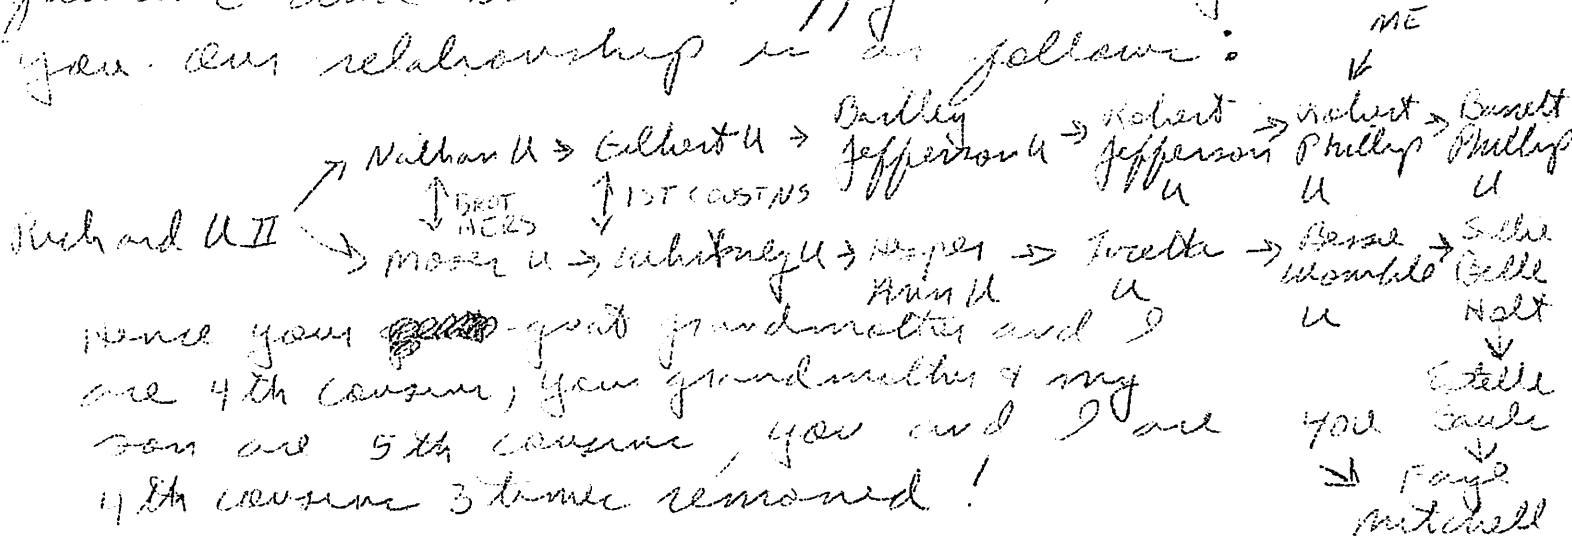 you. Our relationship is as follows:
ME
Nathan U → Gilbert U → Dudley Jefferson U → Robert Jefferson U → Robert Phillip U → Barrett Phillip U
BROTHERS
1ST COUSINS
Richard U II
Moses U → Whitney U → Hesper Ann U → U → Bessie Womble U → Sallie Belle Holt
Hence your great grandmother and I
are 4th cousins, your grandmother & my
son are 5th cousins, you and I are
4th cousins 3 times removed!
Estelle
YOU
Faye
Mitchell